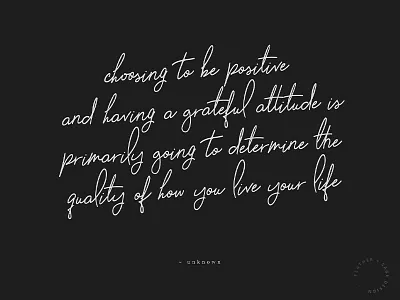 choosing to be positive
and having a grateful attitude is
primarily going to determine the
quality of how you live your life
- unknown